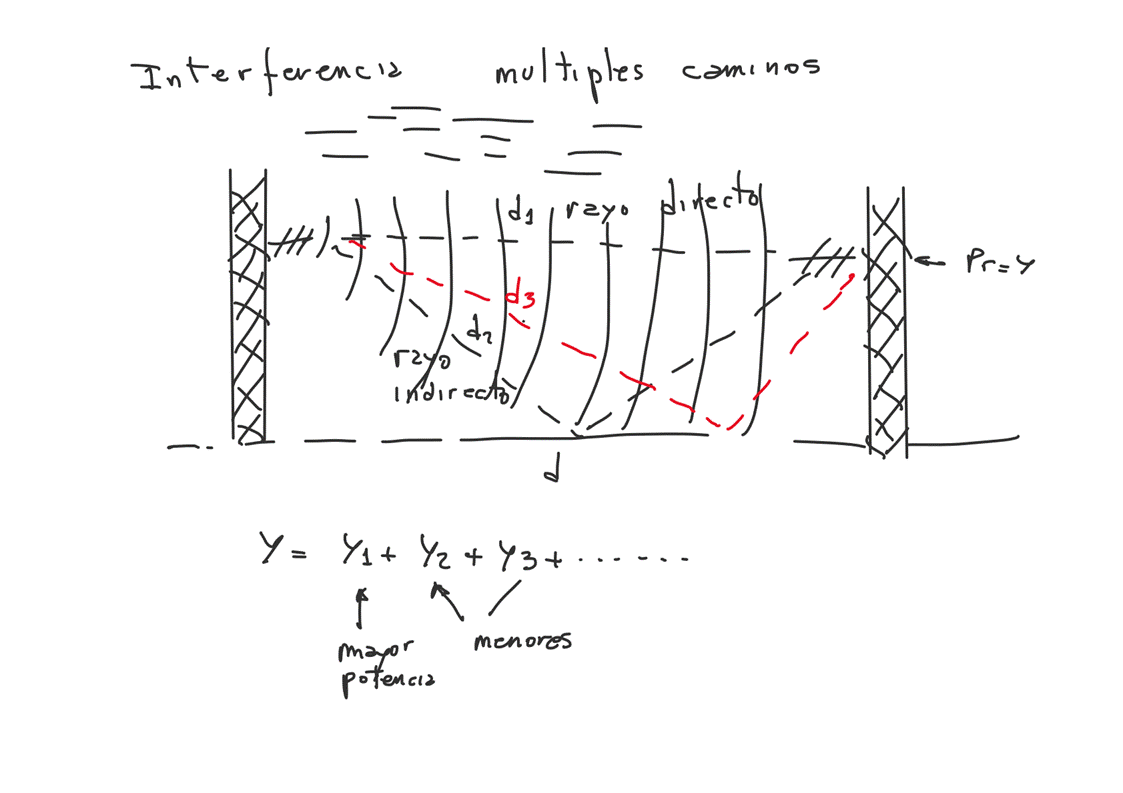 Interferencia multiples caminos
d1 rayo directo
Pr = y
d3
d2
rayo
indirecto
d
Y = Y1 + Y2 + Y3 + .......
mayor
potencia
menores